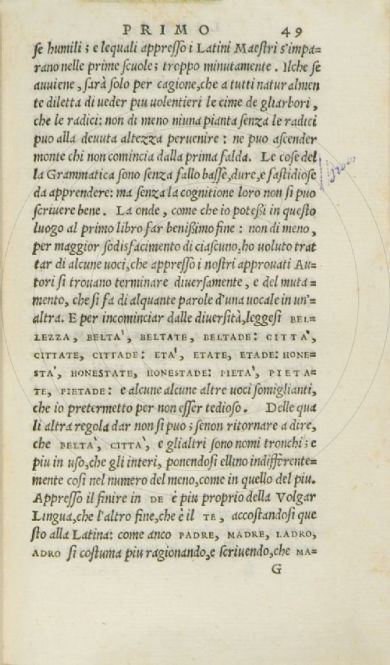 PRIMO 49
se humili; e lequali appresso i Latini Maestri s'impa-
rano nelle prime scuole; troppo minutamente. Ilche se
auuiene, sarà solo per cagione, che a tutti naturalmen
te diletta di ueder piu uolentieri le cime de gliarbori,
che le radici: non di meno niuna pianta senza le radici
puo alla deuuta altezza peruenire: ne puo ascender
monte chi non comincia dalla prima falda. Le cose del
la Grammatica sono senza fallo basse, dure, e fastidiose
da apprendere: ma senza la cognitione loro non si puo
scriuere bene. La onde, come che io potessi in questo
luogo al primo libro far benissimo fine: non di meno,
per maggior sodisfacimento di ciascuno, ho uoluto trat
tar di alcune uoci, che appresso i nostri approuati Au-
tori si trouano terminare diuersamente, e del muta-
mento, che si fa di alquante parole d'una uocale in un'
altra. E per incominciar dalle diuersità, leggesi BEL-
LEZZA, BELTA', BELTATE, BELTADE: CITTA',
CITTATE, CITTADE: ETA', ETATE, ETADE: HONE-
STA', HONESTATE, HONESTADE: PIETA', PIETA-
TE, PIETADE: e alcune alcune altre uoci somiglianti,
che io pretermetto per non esser tedioso. Delle qua
li altra regola dar non si puo; senon ritornare a dire,
che BELTA', CITTA', e glialtri sono nomi tronchi; e
piu in uso, che gli interi, ponendosi ellino indifferente-
mente cosi nel numero del meno, come in quello del piu.
Appresso il finire in DE è piu proprio della Volgar
Lingua, che l'altro fine, che è il TE, accostandosi que
sto alla Latina: come anco PADRE, MADRE, LADRO,
ADRO si costuma piu ragionando, e scriuendo, che MA-
G